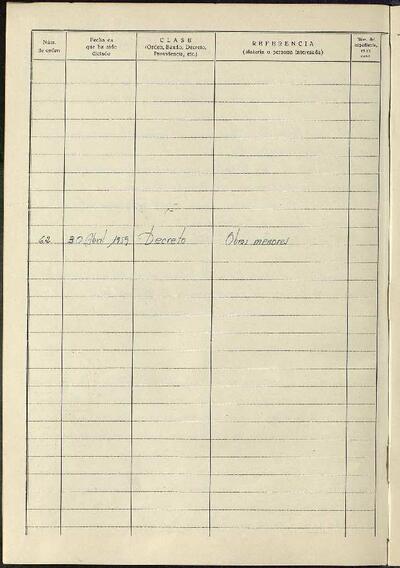 Núm. de orden
Fecha en que ha sido dictado
CLASE
(Orden, Bando, Decreto, Providencia, etc.)
REFERENCIA
(Materia o persona interesada)
62 30 Abril 1959 Decreto Obras menores